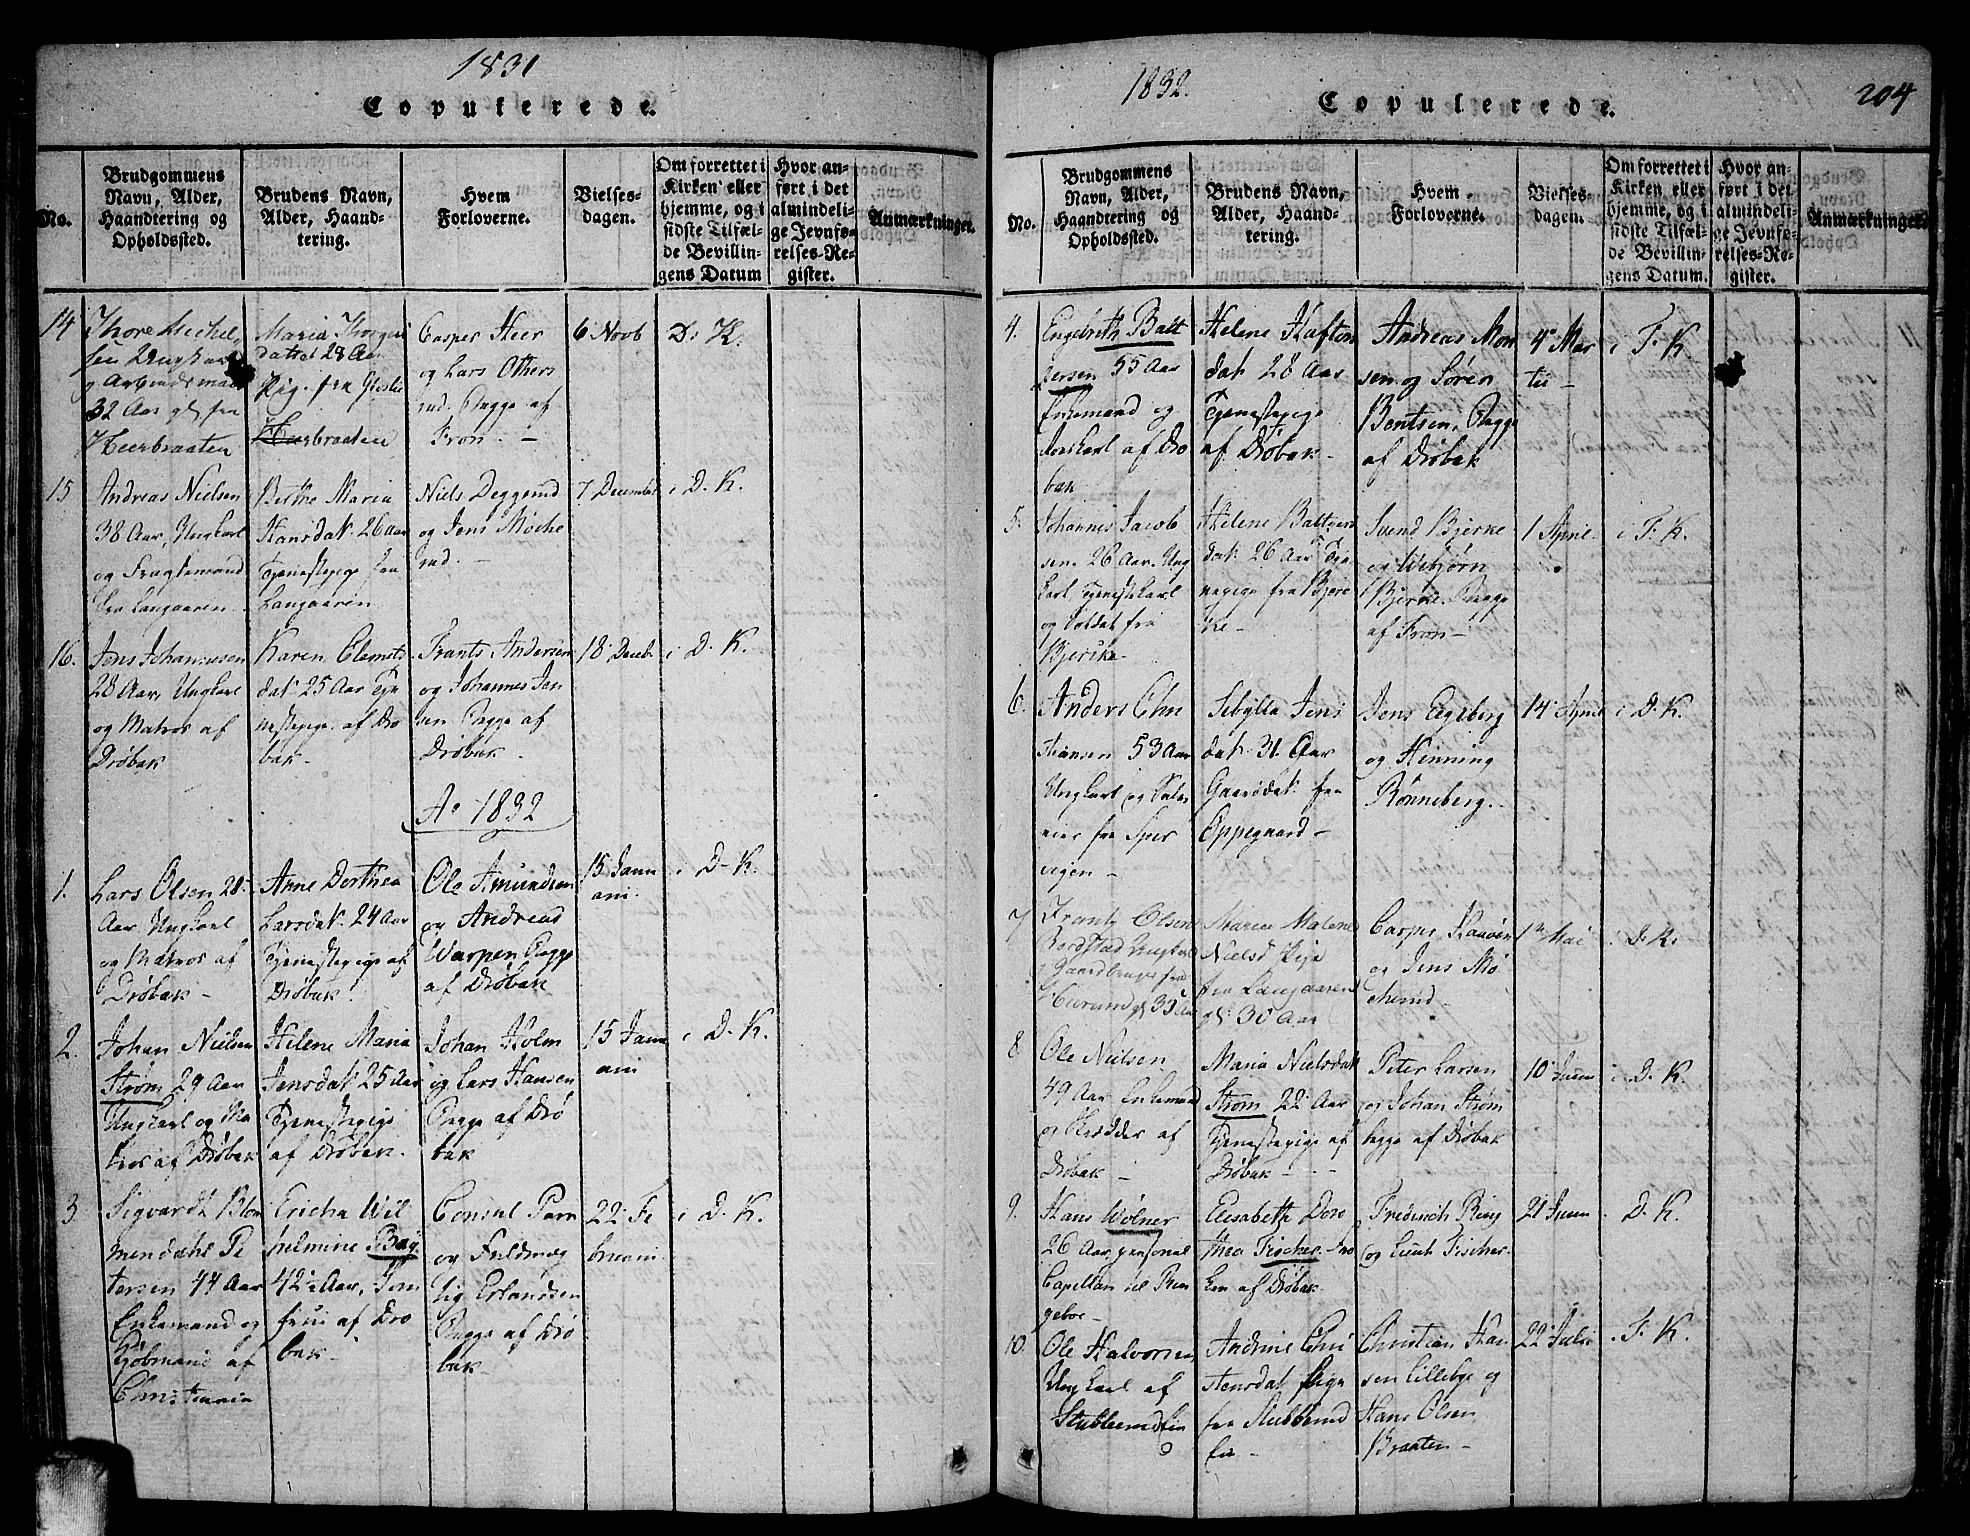 1831
Copulerede.
No.
Brudgommens
Navn, Alder,
Haandtering og
Opholdssted.
Brudens Navn,
Alder, Haand-
tering.
Hvem
Forloverne.
Vielses-
dagen.
Om forrettet i
Kirken eller
hjemme, og i
sidste Tilfæl-
de Bevillin-
gens Datum
Hvor an-
ført i det
almindeli-
ge Jevnfø-
relses-Re-
gister.
Anmærkninger.
14
Thore Michel
sen Ungkar
og Arbeidsmand
32 Aar gl. fra
Heerbraaten
Maria Thorgers
datter 28 Aar
Pig. fra
Heerbraaten
Casper Heer
og Lars Others
rud. Begge af
Fron. -
6 Novb
D. K.
15
Andreas Nielsen
38 Aar, Ungkarl
og Fragtemand
fra Langaaren
Berthe Maria
Hansdat. 26 Aar
Tjenestepige fra
Langaaren
Niels Deggerud
og Jens Moche
rud. -
7 December
i D. K.
16.
Jens Johannesen
28 Aar, Ungkarl
og Matros af
Drøbak
Karen Clemets
dat. 25 Aar Tje
nestepige. af Drø
bak. -
Frants Andersen
og Johannes Jan
sen Begge af
Drøbak.
18 Decb.
i D. K.
Ao 1832
1.
Lars Olsen 28
Aar Ungkarl
og Matros af
Drøbak -
Anne Dorthea
Larsdat. 24 Aar
Tjenestepige af
Drøbak.
Ole Amundsen
og Andreas
Warpen Begge
af Drøbak
15 Janu
arii.
i D. K.
2.
Johan Nielsen
Strøm 29 Aar
Ungkarl og Ma
tros af Drøbak
Helene Maria
Jensdat. 25 Aar
Tjenestepige
af Drøbak.
Johan Holm
og Lars Hansen
Begge af Drø
bak
15 Janu
arii
i D. K.
3
Sigvardt Blo
mendahl Pe
tersen 44 Aar
Enkemand og
Kjøbmand af
Christiania
Ericha Wil
helmine Bag
42½ Aar, Jom
frue af Drø
bak-
Consul Parr
og Fuldmæg
tig Erlandsen
Begge af Drø
bak-
22 Fe
bruarii
i D. K.
1832.
Copulerede.
204
No.
Brudgommens
Navn, Alder,
Haandtering og
Opholdssted.
Brudens Navn,
Alder, Haand-
tering.
Hvem
Forloverne.
Vielses-
dagen.
Om forrettet i
Kirken, eller
hjemme, og i
sidste Tilfæl-
de Bevillin-
gens Datum.
Hvor an-
ført i det
almindeli-
ge Jevnfø-
relses-Re-
gister.
Anmærkninger
4.
Engebreth Balt
zersen 55 Aar
Enkemand og
af Drø
bak
Helene Haftor
dat 28 Aar
Tjenestepige
af Drøbak -
Andreas Mon
sen og Søren
Bentsen, Begge
af Drøbak
4 Mar
tii -
i F. K.
5.
Johannes Jacob
sen. 26 Aar. Ung
karl Tjenestekarl
og Soldat fra
Bjerke
Helene Baltzers
dat. 26 Aar Tje
nepige fra Bjer
ke -
Svend Bjerke
og Asbjørn
Bjerke. Begge
af Fron -
1 April.
i F. K.
6.
Anders Chri
stiansen 53 Aar
Ungkarl og
fra Sper
vigen -
Sibylla Jens
dat. 31. Aar
Gaardat. fra
Oppegaard -
Jens Egeberg
og Henning
Rønneberg. -
14 April
i D. K.
7
Frantz Olsen
Ungkarl
og Gaardbruger fra
Hurum gl. 33 Aar
Maren Malene
Nielsd Pige
fra Langaaren
gl. 30 Aar
Casper Haaøen
og Jens Mo
cherud -
13 Mai
i. D. K.
8
Ole Nielsen
49 Aar Enkemand
og af
Drøbak -
Maria Nielsdat
Strøm 22 Aar
Tjenestepige af
Drøbak - -
Peter Larsen
og Johan Strøm
begge af Drøbak
10 Junii
i. D. K.
9.
Hans Wølner
26 Aar personel
Capellan til Rin
geboe -
Elisabeth Doro
thea Fischer. Frø
ken af Drøbak
Frederich Ring
og Lieut Fischer.
21 Junii
. D. K.
10.
Ole Halvorsen,
Ungkarl af
Stubberudeie
Andrine Chri
stensdat Pige
fra Stubberud
eie -
Christian Han
sen Lillebye og
Hans Olsen
Braaten -
22 Julii
. F. K.